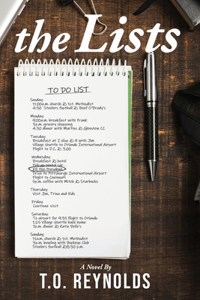 the Lists
TO DO LIST
Sunday
11:00a.m. church @ 1st. Methodist
4:30 Steelers football @ Beef O'Brady's
Monday
9:00a.m. breakfast with Frank
3p.m. grocery shopping
6:30 dinner with Martin @ Glencoe CC
Tuesday
Breakfast at I-Hop @ 9 with Jim
Village Shuttle to Orlando International Airport
Flight to D.C. @ 5:00
Wednesday
Breakfast @ hotel
Drive to Pittsburgh International Airport
Flight to Cincinnati
5p.m. coffee with Mitch @ Starbucks
Thursday
Visit Jim, Trina and Kids
Friday
Continue visit
Saturday
To airport for 9:30 flight to Orlando
1:25 Village shuttle home
7p.m. dinner @ Katie Belle's
Sunday
11a.m. church @ 1st. Methodist
3p.m. bowling with Shakzar Club
Steelers football @ 8:30 p.m.
A Novel By
T.O. REYNOLDS